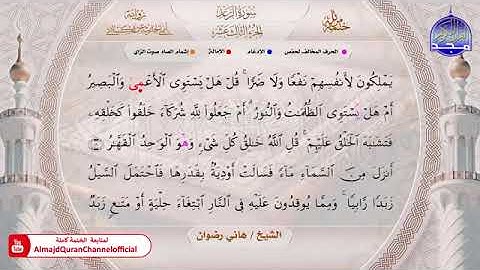 سورة الرعد
الجزء الثالث عشر
الحرف المخالف لحفص
الإدغام
الإمالة
إشمام الصاد صوت الزاي
يَمْلِكُونَ لِأَنفُسِهِمْ نَفْعًا وَلَا ضَرًّا ۚ قُلْ هَلْ يَسْتَوِى الْأَعْمَىٰ وَالْبَصِيرُ
أَمْ هَلْ يَسْتَوِى الظُّلُمَٰتُ وَالنُّورُ ۗ أَمْ جَعَلُوا لِلَّهِ شُرَكَآءَ خَلَقُوا كَخَلْقِهِۦ
فَتَشَٰبَهَ الْخَلْقُ عَلَيْهِمْ ۚ قُلِ اللَّهُ خَٰلِقُ كُلِّ شَىْءٍ وَهْوَ الْوَٰحِدُ الْقَهَّٰرُ
أَنزَلَ مِنَ السَّمَآءِ مَآءً فَسَالَتْ أَوْدِيَةٌ بِقَدَرِهَا فَاحْتَمَلَ السَّيْلُ
زَبَدًا رَّابِيًا ۚ وَمِمَّا يُوقِدُونَ عَلَيْهِ فِى النَّارِ ابْتِغَآءَ حِلْيَةٍ أَوْ مَتَٰعٍ زَبَدٌ
الشيخ / هاني رضوان
لمتابعة الختمة كاملة
AlmajdQuranChannelofficial